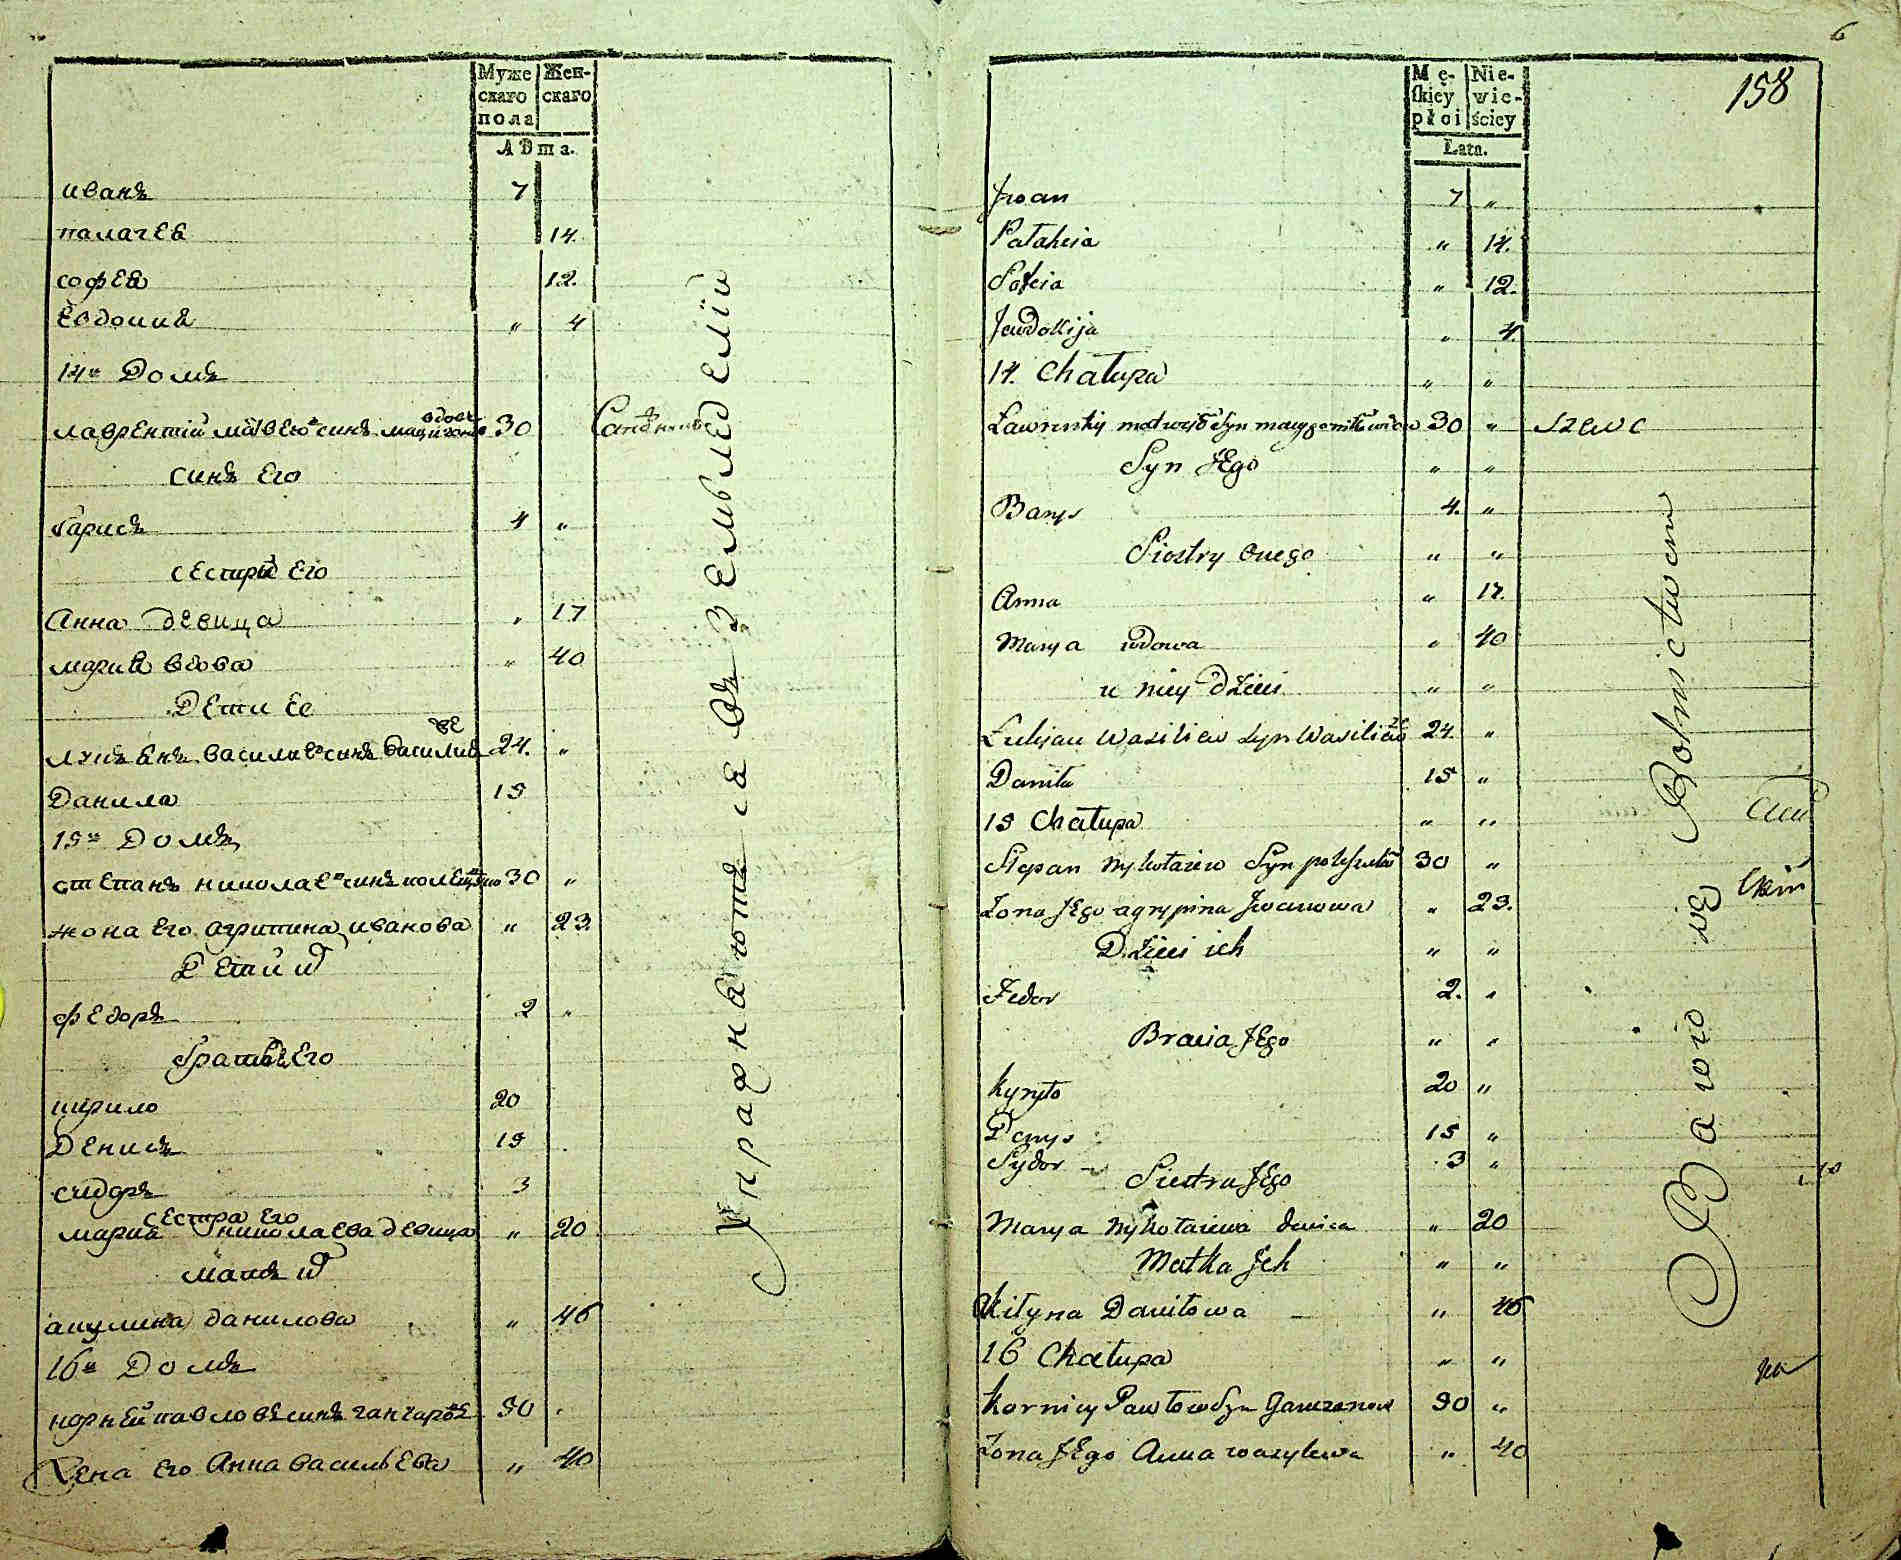 Муже
скаго
пола
Жен-
скаго
Лѣта.
иванъ 7
палагея 14.
софея 12.
Евдокия " 4
14й Домъ
лаврентий матвеювъ синъ вдовъ 30 Сапожникъ
синъ его
барисъ 4 "
сестры его
Анна девица " 17
мария вдова " 40
Дети ее
лукьянъ васильевъ синъ василив 24. "
Данила 15
15й Домъ
степанъ николаевъ синъ 30 "
жона его агрипина иванова " 23.
Дети их
федоръ 2 "
братья Его
кирило 20
Денисъ 15
сидоръ 3
сестра его
мария николаева девица " 20
матъ их
акулина данилова " 46
16й Домъ
корней павловъ синъ ганчаровъ 50
Жена его Анна васильева " 40
Упражняются въ Земледелїи
6
158
Mę-
skiey
płoi
Nie-
wie-
ściey
Lata.
Jwan 7 "
Palaheia " 14.
Sofeia " 12.
Jewdokija " 4.
14. Chałupa " "
Ławrentiy matwiyow Syn wdow 30 " szewc
Syn Jego " "
Barys 4. "
Siostry onego " "
Anna " 17.
Marya wdowa " 40
u niey Dzieci " "
Łukjan Wasiliew syn 24. "
Daniła 15 "
15 Chałupa " "
Stepan Mykołaiew Syn 30 "
Żona Jego agrypina Jwanowa " 23.
Dzieci ich " "
Fedor 2. "
Bracia Jego " "
Kyryło 20 "
Denys 15 "
Sydor 3 "
Siestra Jego
Marya Mykołaiewa dewica " 20
Matka Jch " "
Akilyna Daniłowa " 46
16 Chałupa " "
Korniey Pawłow Syn Ganczarow 50 "
Żona Jego Anna wasylewa " 40
Bawio się Rolnictwem